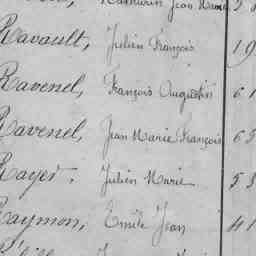 Mathurin Jean Marie
Ravault, Julien François 19
Ravenel, François Augustin 61
Ravenel, Jean Marie François 65
Rayer, Julien Marie 53
Raymon, Emile Jean 41